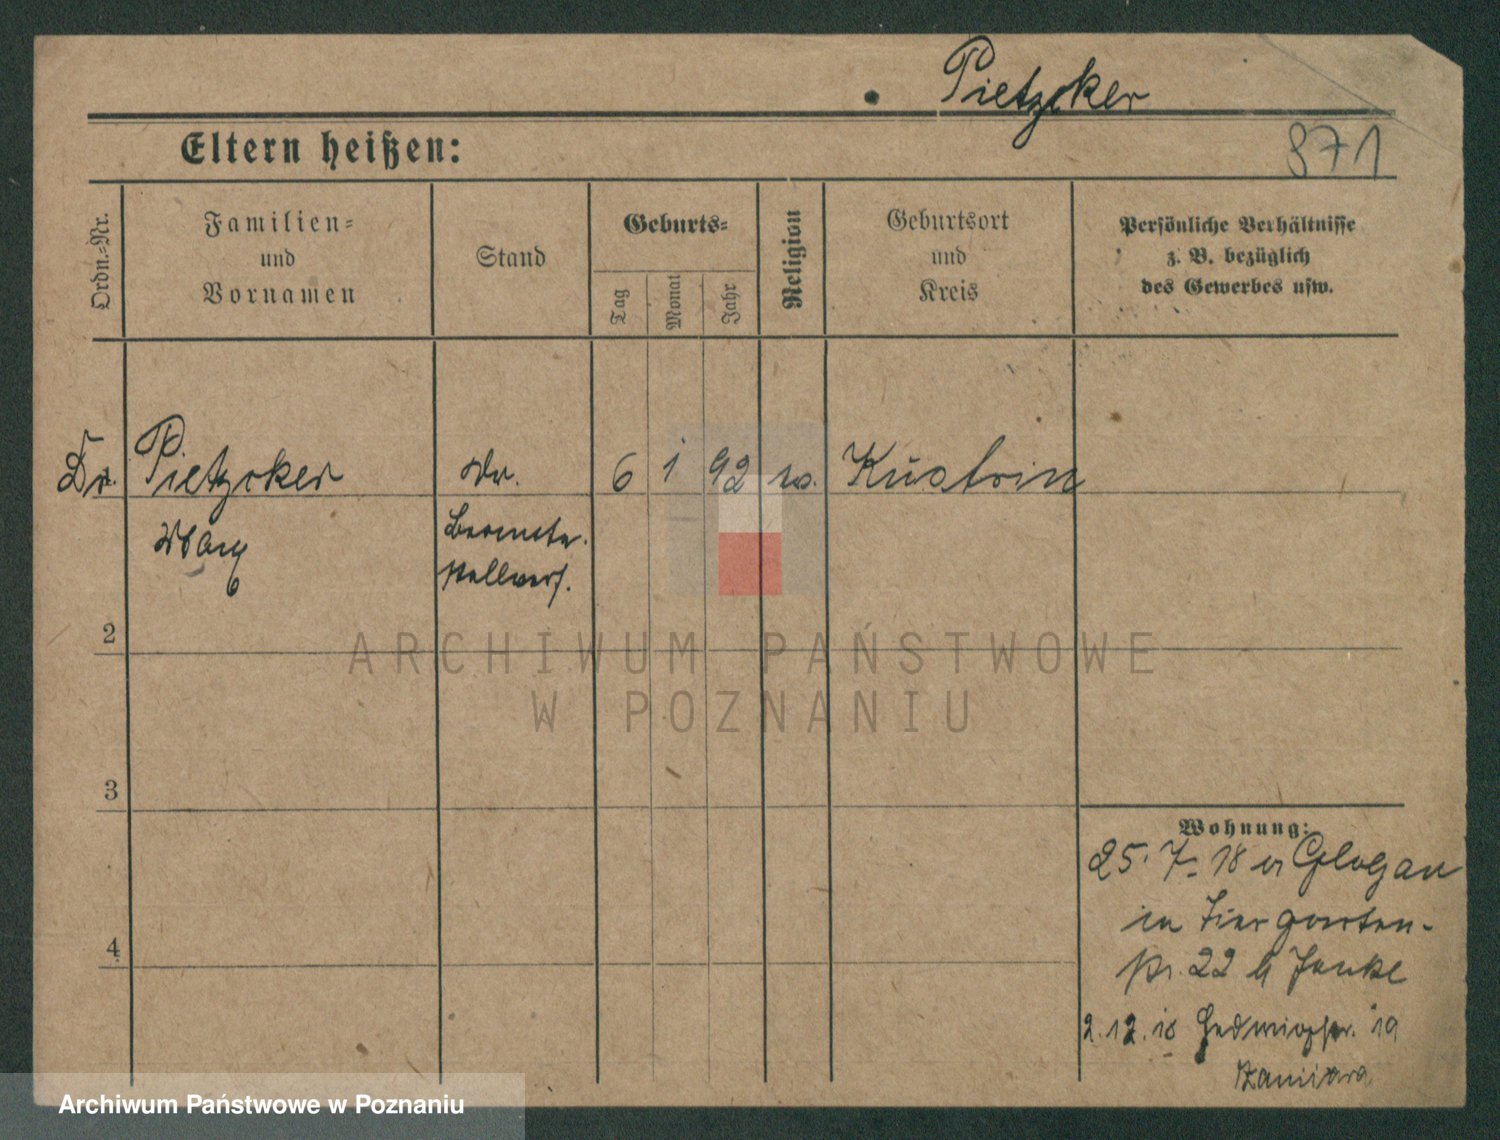 Pietzcker
Eltern heißen:
871
Ordn.=Nr.
Familien=
und
Vornamen
Stand
Geburts=
Tag
Monat
Jahr
Religion
Geburtsort
und
Kreis
Persönliche Verhältnisse
z. B. bezüglich
des Gewerbes usw.
Dr. Pietzcker
6 1 92
Küstrin
2
3
4
Wohnung:
25. 7. 18 Glogau
in Tiergarten-
str. 22 b Janke
2. 12. 18 19
ARCHIWUM PAŃSTWOWE
W POZNANIU
Archiwum Państwowe w Poznaniu